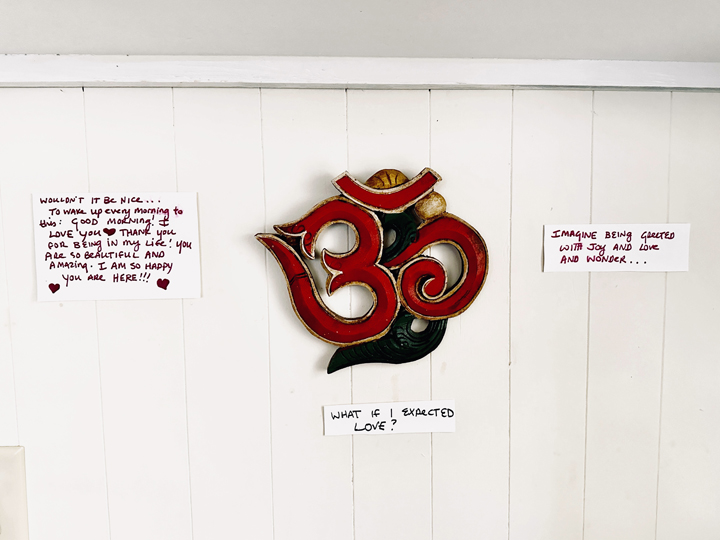 WOULDN'T IT BE NICE...
TO WAKE UP every morning to
this: GOOD MORNING! I
LOVE YOU ♥ THANK YOU
FOR BEING IN my LIFE! YOU
ARE SO BEAUTIFUL AND
AMAZING. I AM SO HAPPY
YOU ARE HERE!!!
ॐ
WHAT IF I EXPECTED
LOVE?
IMAGINE BEING GREETED
WITH JOY AND LOVE
AND WONDER...